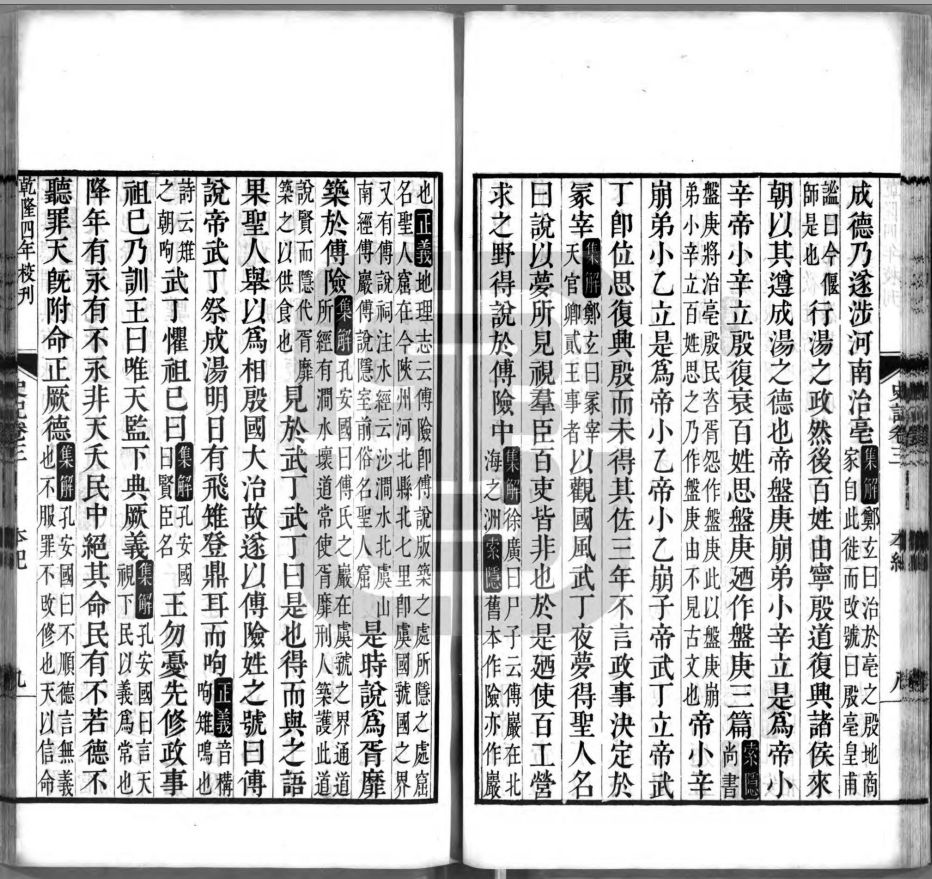 成德乃遂涉河南治亳集解鄭玄曰治於亳之殷地商家自此徙而改號曰殷亳皇甫
謐曰今偃師是也行湯之政然後百姓由寧殷道復興諸侯來
朝以其遵成湯之德也帝盤庚崩弟小辛立是爲帝小
辛帝小辛立殷復衰百姓思盤庚廼作盤庚三篇索隱尚書
盤庚將治亳殷民咨胥怨作盤庚此以盤庚崩弟小辛立百姓思之乃作盤庚由不見古文也帝小辛
崩弟小乙立是爲帝小乙帝小乙崩子帝武丁立帝武
丁卽位思復興殷而未得其佐三年不言政事決定於
冢宰集解鄭玄曰冢宰天官卿貳王事者以觀國風武丁夜夢得聖人名
曰說以夢所見視羣臣百吏皆非也於是廼使百工營
求之野得說於傅險中集解徐廣曰尸子云傅巖在北海之洲索隱舊本作險亦作巖
史記卷三 本紀 八
也正義地理志云傅險卽傅說版築之處所隱之處窟名聖人窟在今陜州河北縣北七里卽虞國虢國之界
又有傅說祠注水經云沙澗水北虞山南經傅巖傅說隱室前俗名聖人窟是時說爲胥靡
築於傅險集解孔安國曰傅氏之巖在虞虢之界通道所經有澗水壞道常使胥靡刑人築護此道
說賢而隱代胥靡築之以供食也見於武丁武丁曰是也得而與之語
果聖人舉以爲相殷國大治故遂以傅險姓之號曰傅
說帝武丁祭成湯明日有飛雉登鼎耳而呴正義音構呴雉鳴也
詩云雉之朝呴武丁懼祖巳曰集解孔安國曰賢臣名王勿憂先修政事
祖巳乃訓王曰唯天監下典厥義集解孔安國曰言天視下民以義爲常也
降年有永有不永非天夭民中絕其命民有不若德不
聽罪天旣附命正厥德集解孔安國曰不順德言無義也不服罪不改修也天以信命
乾隆四年校刊
史記卷三 本紀 九